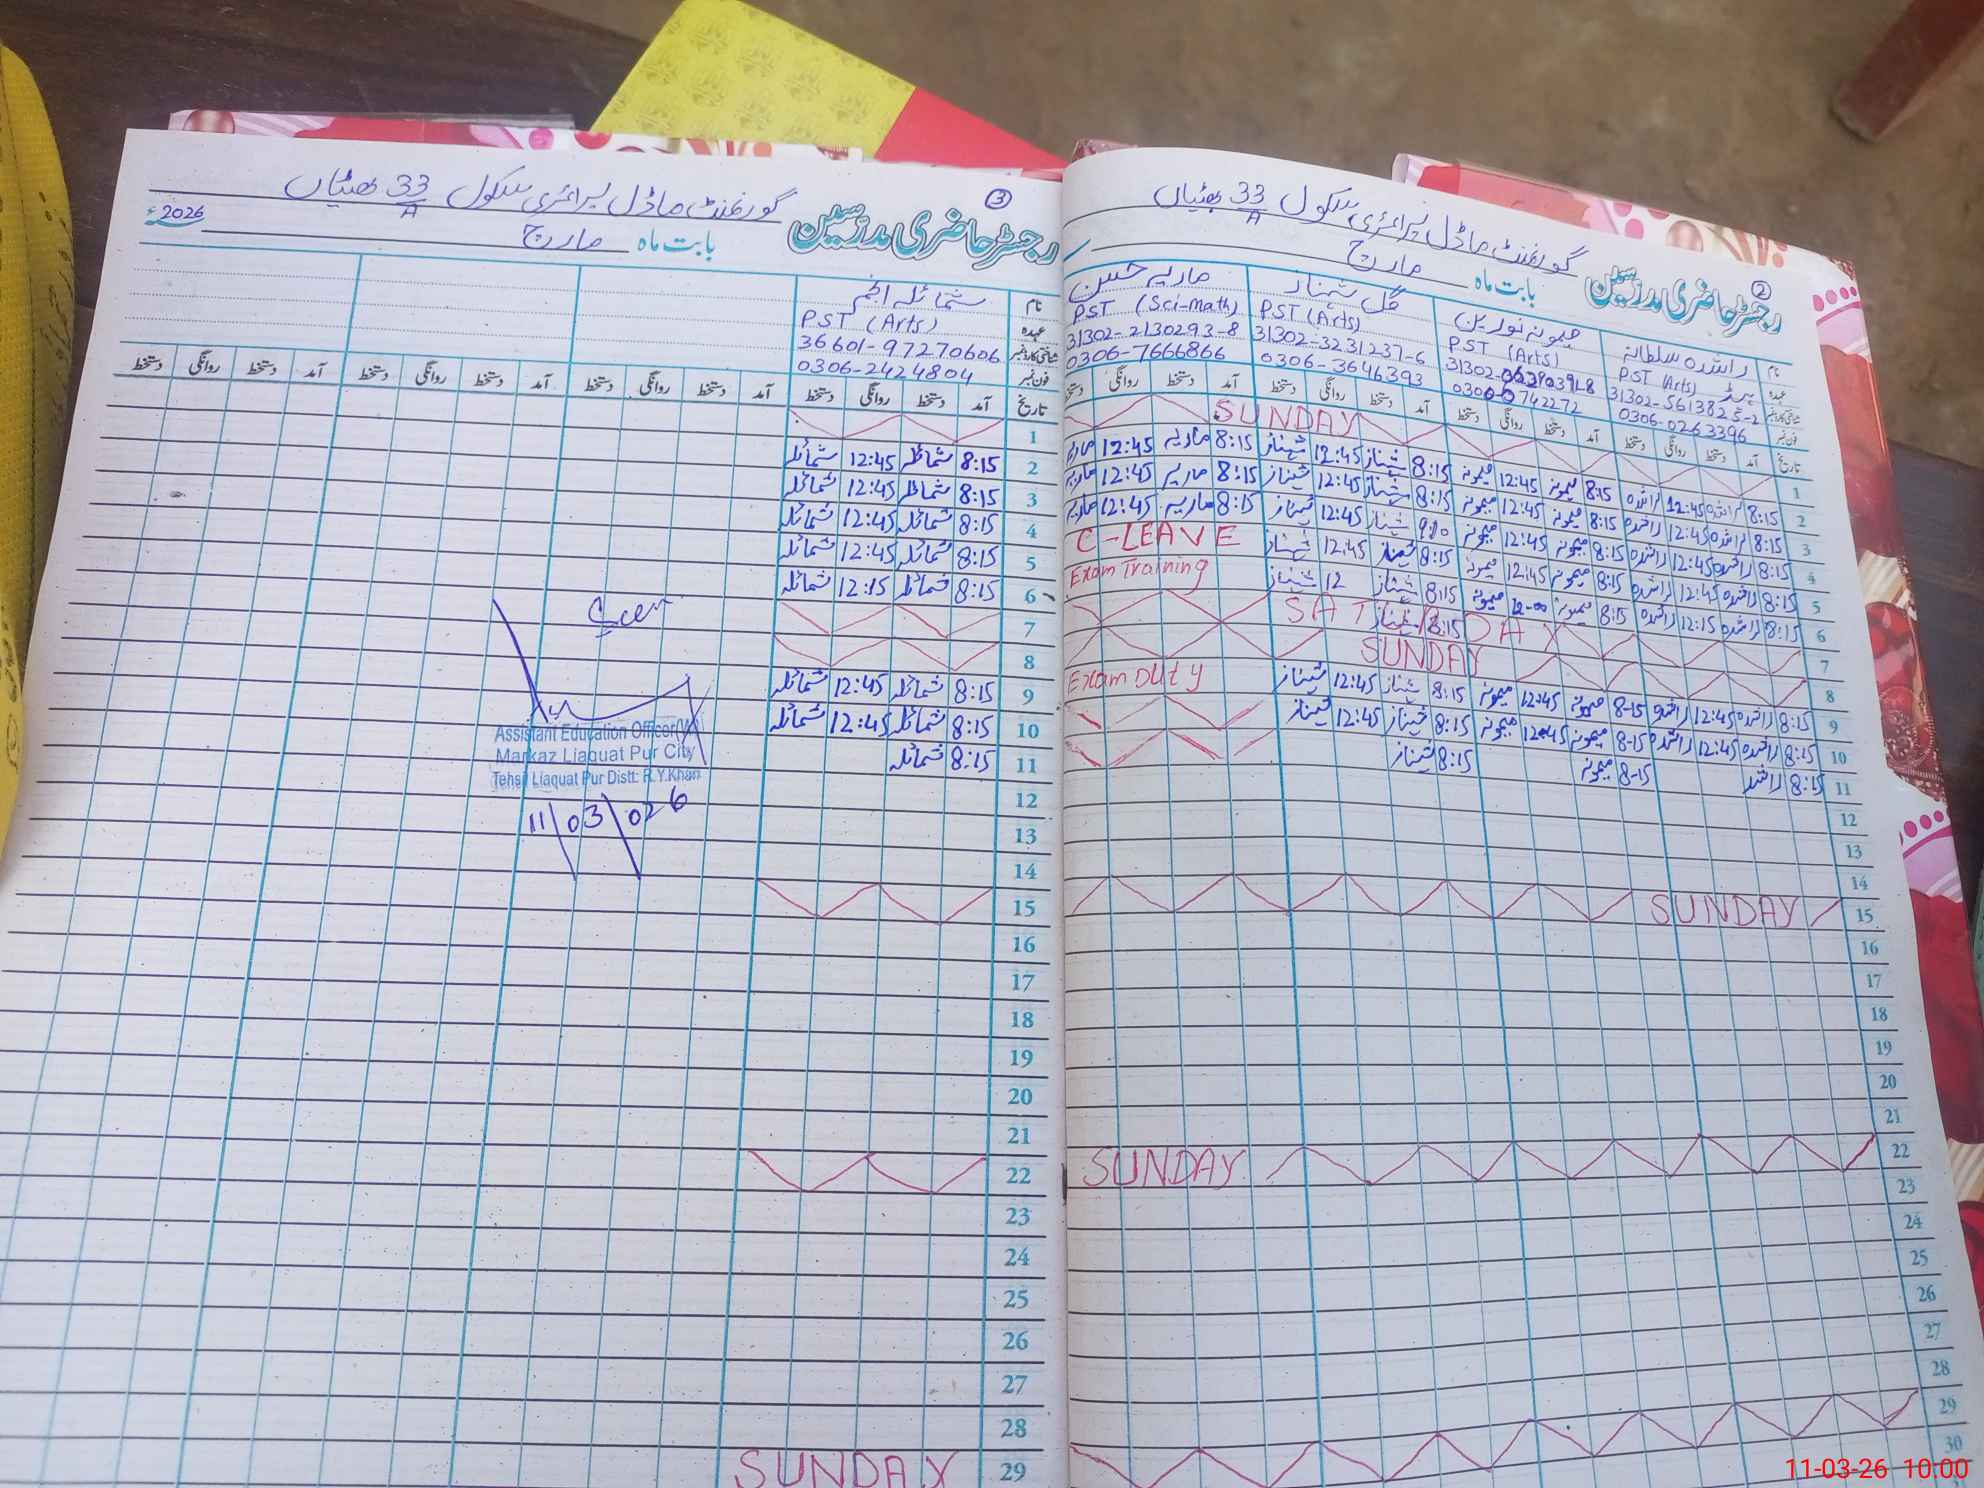 ③
گورنمنٹ ماڈل پرائمری سکول 33/A بھٹیاں
رجسٹر حاضری مدرسین
بابت ماہ مارچ 2026ء
نام شمائلہ انجم
عہدہ PST (Arts)
شناختی کارڈ نمبر 36601-97270606
فون نمبر 0306-2424804
تاریخ آمد دستخط روانگی دستخط آمد دستخط روانگی دستخط آمد دستخط روانگی دستخط
1
2 8:15 شمائلہ 12:45 شمائلہ
3 8:15 شمائلہ 12:45 شمائلہ
4 8:15 شمائلہ 12:45 شمائلہ
5 8:15 شمائلہ 12:45 شمائلہ
6 8:15 شمائلہ 12:15 شمائلہ
7
8
9 8:15 شمائلہ 12:45 شمائلہ
10 8:15 شمائلہ 12:45 شمائلہ
11 8:15 شمائلہ
12
13
14
15
16
17
18
19
20
21
22
23
24
25
26
27
28
29 SUNDAY
Seen
Assistant Education Officer(W)
Markaz Liaquat Pur City
Tehsil Liaquat Pur Distt: R.Y.Khan
11/03/026
②
گورنمنٹ ماڈل پرائمری سکول 33/A بھٹیاں
رجسٹر حاضری مدرسین
بابت ماہ مارچ
نام راشدہ سلطانہ میمونہ نورین گل شہناز ماریہ حسن
عہدہ PST (Arts) PST (Arts) PST (Arts) PST (Sci-math)
شناختی کارڈ نمبر 31302-5613825-2 31302-3231237-6 31302-2130293-8
فون نمبر 0306-0263396 0306-3646393 0306-7666866
تاریخ آمد دستخط روانگی دستخط آمد دستخط روانگی دستخط آمد دستخط روانگی دستخط آمد دستخط روانگی دستخط
1 SUNDAY
2 8:15 راشدہ 12:45 راشدہ 8:15 میمونہ 12:45 میمونہ 8:15 شہناز 12:45 شہناز 8:15 ماریہ 12:45 ماریہ
3 8:15 راشدہ 12:45 راشدہ 8:15 میمونہ 12:45 میمونہ 8:15 شہناز 12:45 شہناز 8:15 ماریہ 12:45 ماریہ
4 8:15 راشدہ 12:45 راشدہ 8:15 میمونہ 12:45 میمونہ شہناز 12:45 شہناز 8:15 ماریہ 12:45 ماریہ
5 8:15 راشدہ 12:45 راشدہ 8:15 میمونہ 12:45 میمونہ 8:15 شہناز 12:45 شہناز C-LEAVE
6 8:15 راشدہ 12:15 راشدہ 8:15 میمونہ 12-00 میمونہ 8:15 شہناز 12 شہناز Exam Training
7 SATURDAY 8:15 شہناز
8 SUNDAY
9 8:15 راشدہ 12:45 راشدہ 8-15 میمونہ 12:45 میمونہ 8:15 شہناز 12:45 شہناز Exam Duty
10 8:15 راشدہ 12:45 راشدہ 8-15 میمونہ 12:45 میمونہ 8:15 شہناز 12:45 شہناز
11 8:15 راشدہ 8-15 میمونہ 8:15 شہناز
12
13
14
15 SUNDAY
16
17
18
19
20
21
22 SUNDAY
23
24
25
26
27
28
29
30
11-03-26 10:00